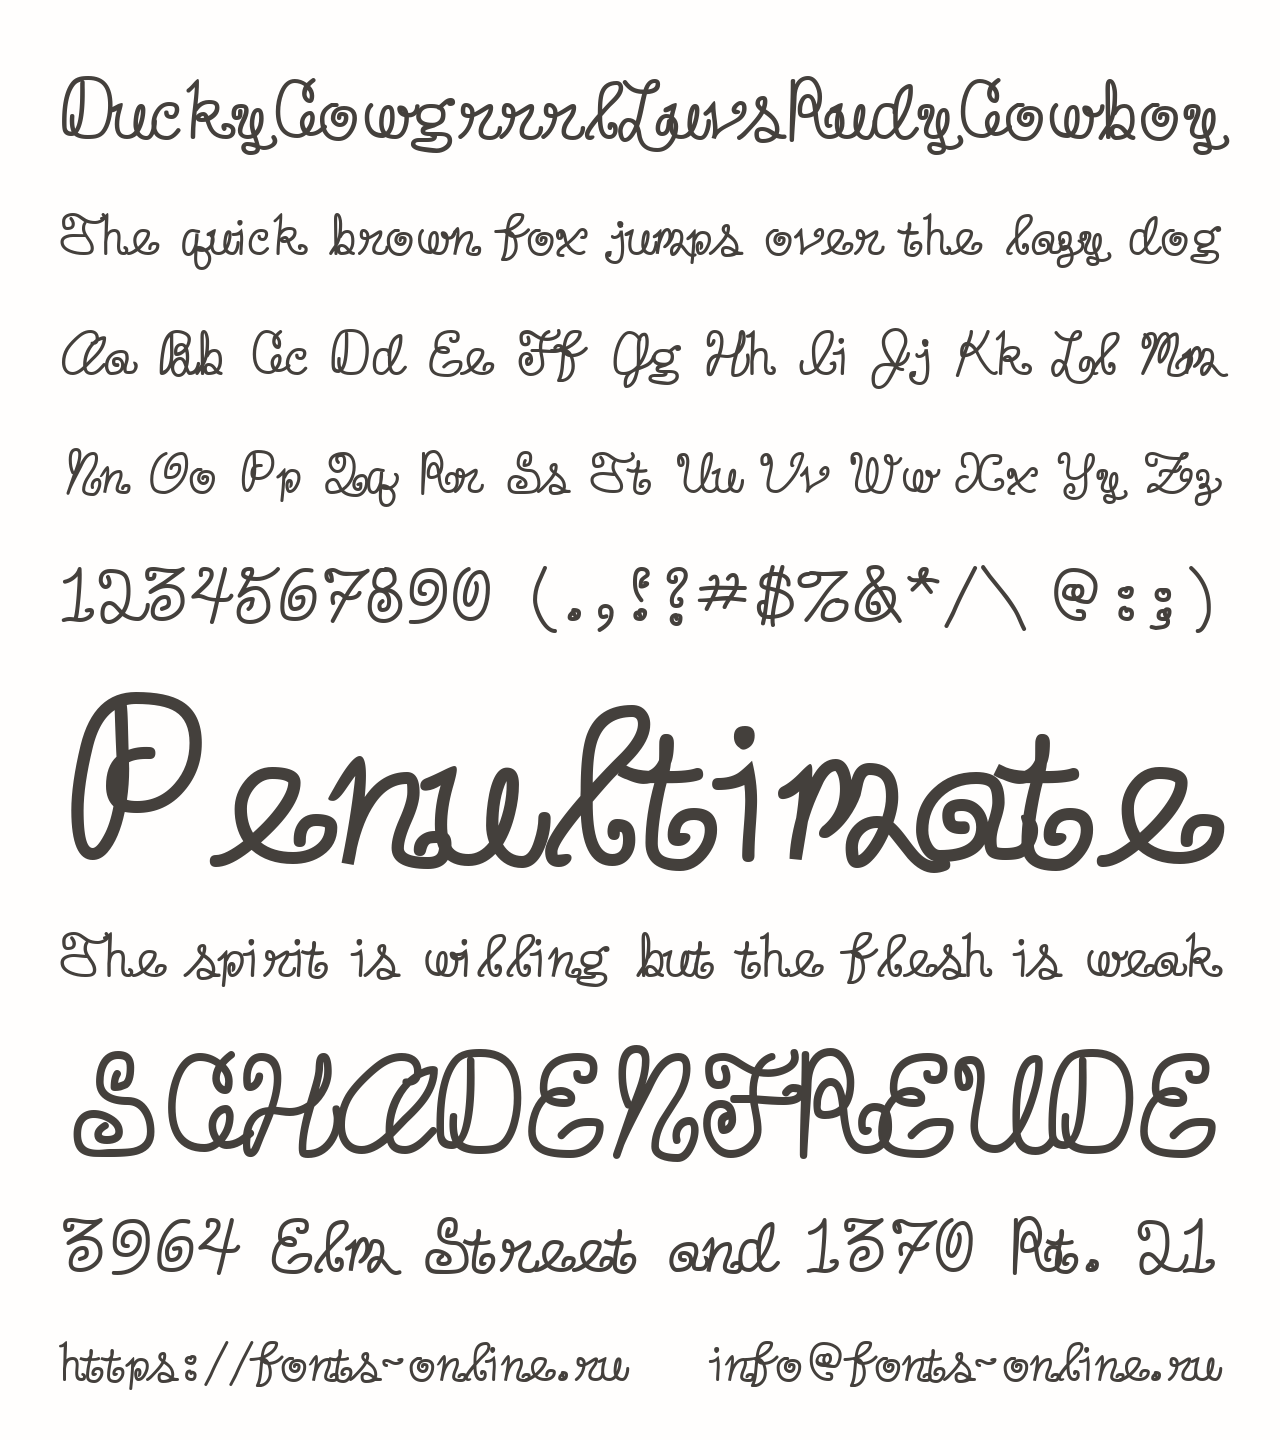 DuckyCowgrrrlLuvsRudyCowboy
The quick brown fox jumps over the lazy dog
Aa Bb Cc Dd Ee Ff Gg Hh Ii Jj Kk Ll Mm
Nn Oo Pp Qq Rr Ss Tt Uu Vv Ww Xx Yy Zz
1234567890 (.,!?#$%&*/\ @:;)
Penultimate
The spirit is willing but the flesh is weak
SCHADENFREUDE
3964 Elm Street and 1370 Rt. 21
https://fonts-online.ru info@fonts-online.ru